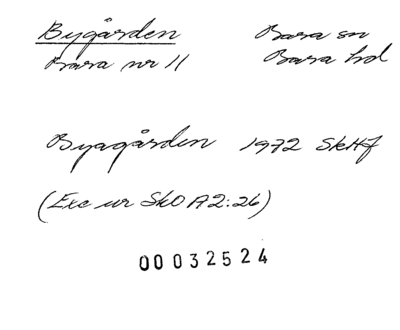 Bygården Bara sn
Bara nr 11 Bara hd
Byagården 1972 SkHf
(Exc ur SkO A2:26)
00032524